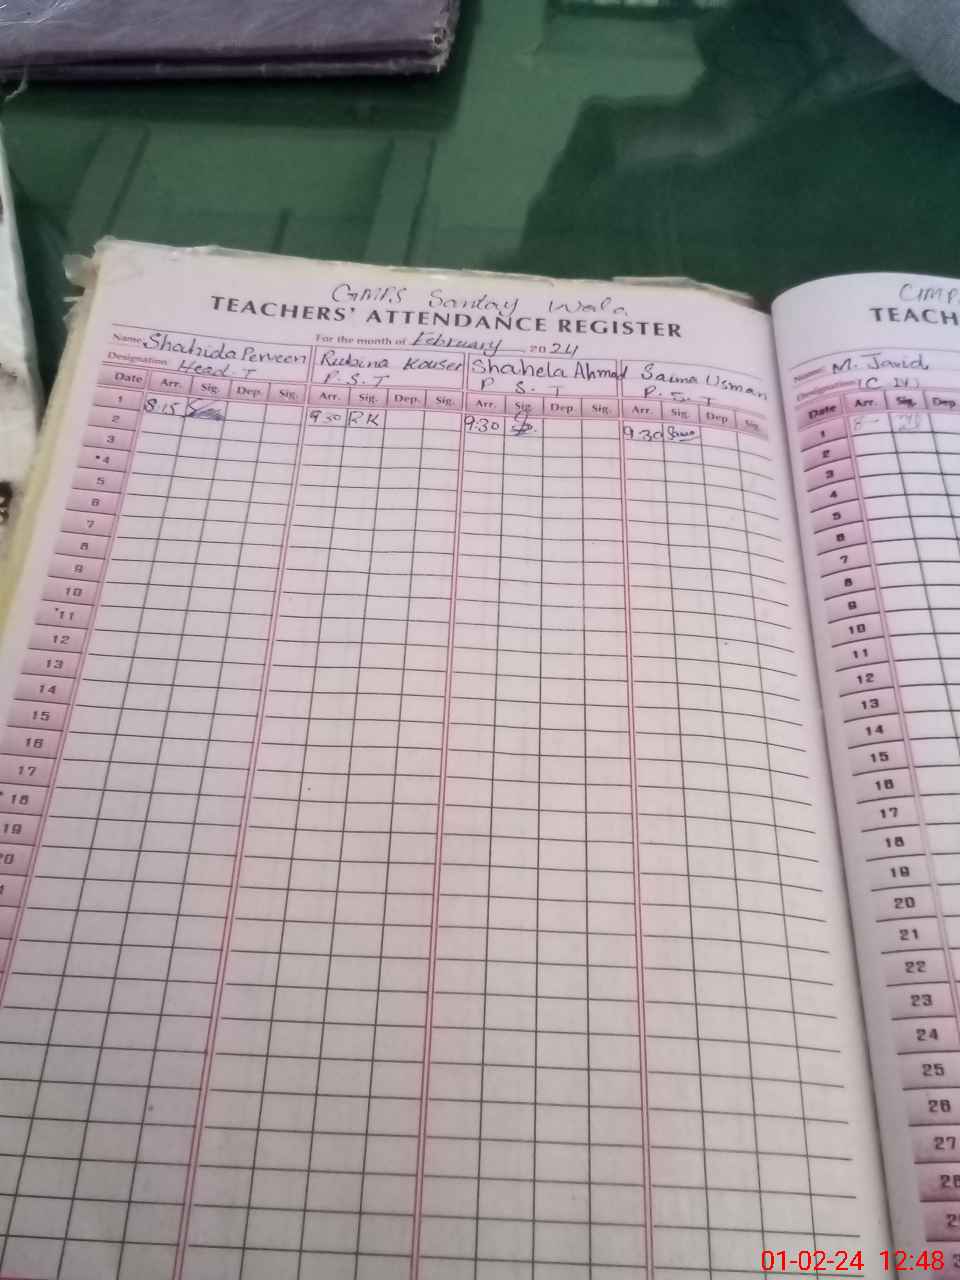 GMPS Santay Wala
TEACHERS' ATTENDANCE REGISTER
Name Shahida Perveen For the month of February 2024
Rubina Kouser Shahela Ahmad Saima Usman
Designation Head T P.S.T P S.T P.S.T
Date Arr. Sig. Dep. Sig. Arr. Sig. Dep. Sig. Arr. Sig. Dep. Sig. Arr. Sig. Dep Sig.
1 8:15 9:30 RK 9:30 9:30
2
3
*4
5
6
7
8
9
10
*11
12
13
14
15
16
17
*18
19
20
TEACH
Name: M. Javid
Designation (C IV)
Date Arr. Sig. Dep
1
2
3
4
5
6
7
8
9
10
11
12
13
14
15
16
17
18
19
20
21
22
23
24
25
26
27
28
01-02-24 12:48